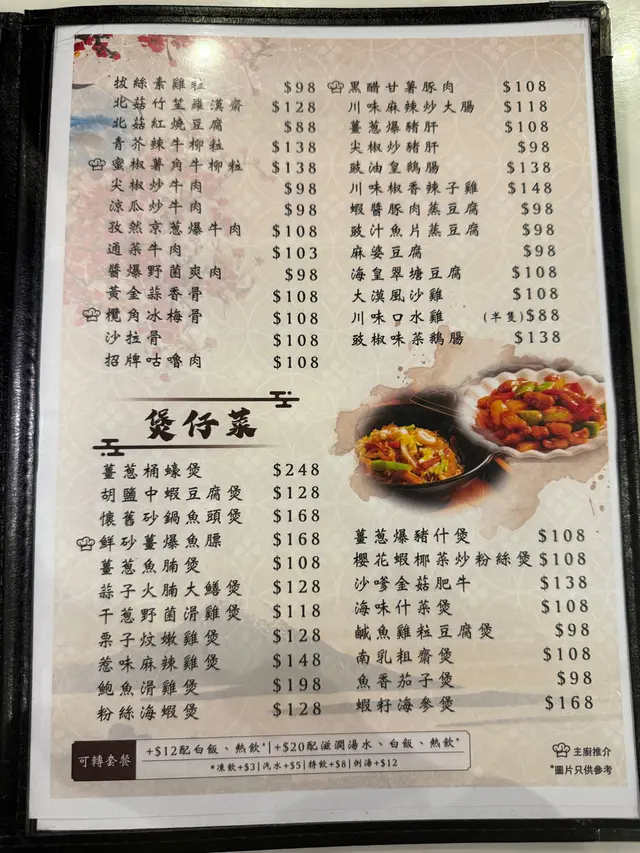 拔絲素雞粒 $98
北菇竹笙羅漢齋 $128
北菇紅燒豆腐 $88
青芥辣牛柳粒 $138
蜜椒薯角牛柳粒 $138
尖椒炒牛肉 $98
涼瓜炒牛肉 $98
孜然京葱爆牛肉 $108
通菜牛肉 $103
醬爆野菌爽肉 $98
黃金蒜香骨 $108
欖角冰梅骨 $108
沙拉骨 $108
招牌咕嚕肉 $108
黑醋甘薯豚肉 $108
川味麻辣炒大腸 $118
薑葱爆豬肝 $108
尖椒炒豬肝 $98
豉油皇鵝腸 $138
川味椒香辣子雞 $148
蝦醬豚肉蒸豆腐 $98
豉汁魚片蒸豆腐 $98
麻婆豆腐 $98
海皇翠塘豆腐 $108
大漠風沙雞 $108
川味口水雞 (半隻)$88
豉椒味菜鵝腸 $138
煲仔菜
薑葱桶蠔煲 $248
胡鹽中蝦豆腐煲 $128
懷舊砂鍋魚頭煲 $168
鮮砂薑爆魚膘 $168
薑葱魚腩煲 $108
蒜子火腩大鱔煲 $128
干葱野菌滑雞煲 $118
栗子炆嫩雞煲 $128
惹味麻辣雞煲 $148
鮑魚滑雞煲 $198
粉絲海蝦煲 $128
薑葱爆豬什煲 $108
櫻花蝦椰菜炒粉絲煲 $108
沙嗲金菇肥牛 $138
海味什菜煲 $108
鹹魚雞粒豆腐煲 $98
南乳粗齋煲 $108
魚香茄子煲 $98
蝦籽海參煲 $168
可轉套餐
+$12配白飯、熱飲*|+$20配滋潤湯水、白飯、熱飲*
*凍飲+$3|汽水+$5|特飲+$8|例湯+$12
主廚推介
*圖片只供參考